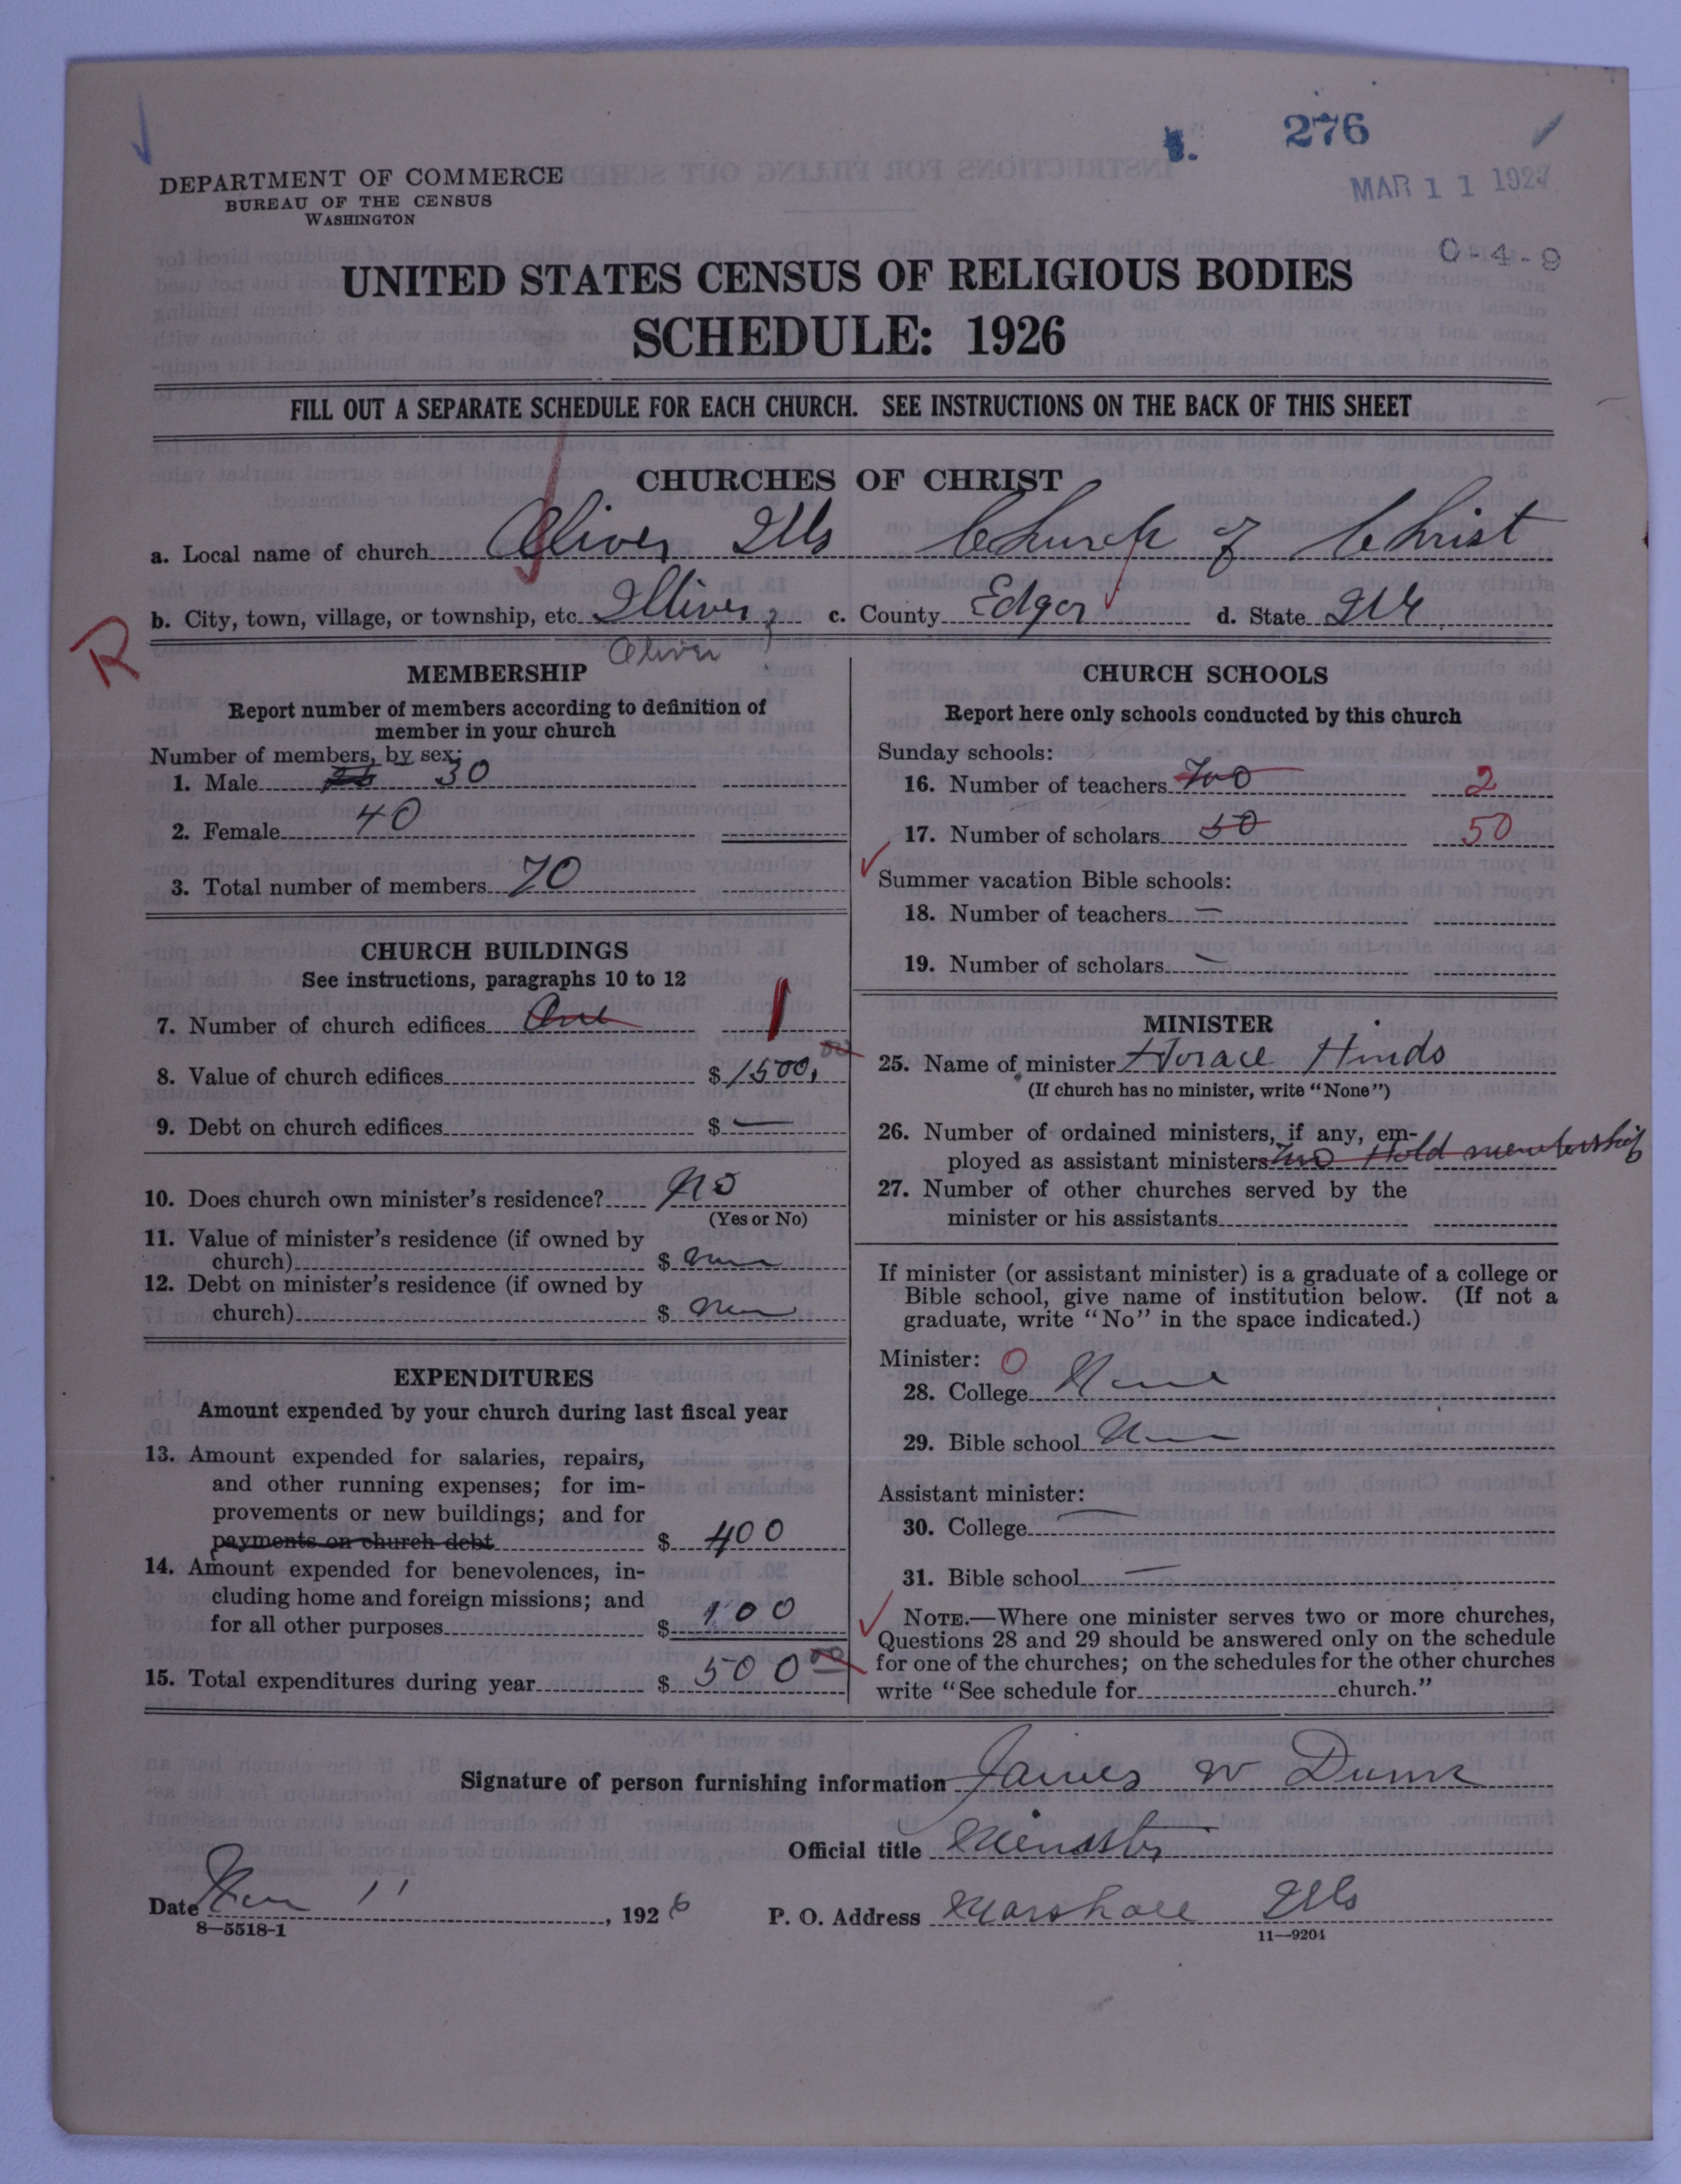 276
MAR 11 1927
DEPARTMENT OF COMMERCE
BUREAU OF THE CENSUS
WASHINGTON
0-4-9
UNITED STATES CENSUS OF RELIGIOUS BODIES
SCHEDULE: 1926
FILL OUT A SEPARATE SCHEDULE FOR EACH CHURCH. SEE INSTRUCTIONS ON THE BACK OF THIS SHEET
CHURCHES OF CHRIST
a. Local name of church Oliver Ills Church of Christ
b. City, town, village, or township, etc. Oliver c. County Edgar d. State Ill
Oliver
R
MEMBERSHIP
Report number of members according to definition of
member in your church
Number of members, by sex:
1. Male 30
2. Female 40
3. Total number of members 70
CHURCH BUILDINGS
See instructions, paragraphs 10 to 12
7. Number of church edifices One 1
8. Value of church edifices $ 1500,00
9. Debt on church edifices $ —
10. Does church own minister's residence? No
(Yes or No)
11. Value of minister's residence (if owned by
church) $ None
12. Debt on minister's residence (if owned by
church) $ None
EXPENDITURES
Amount expended by your church during last fiscal year
13. Amount expended for salaries, repairs,
and other running expenses; for im-
provements or new buildings; and for
payments on church debt $ 400
14. Amount expended for benevolences, in-
cluding home and foreign missions; and
for all other purposes $ 100
15. Total expenditures during year $ 500 00
CHURCH SCHOOLS
Report here only schools conducted by this church
Sunday schools:
16. Number of teachers Two 2
17. Number of scholars 50 50
Summer vacation Bible schools:
18. Number of teachers —
19. Number of scholars —
MINISTER
25. Name of minister Horace Hinds
(If church has no minister, write "None")
26. Number of ordained ministers, if any, em-
ployed as assistant ministers Two Hold membership
27. Number of other churches served by the
minister or his assistants
If minister (or assistant minister) is a graduate of a college or
Bible school, give name of institution below. (If not a
graduate, write "No" in the space indicated.)
Minister: 0
28. College None
29. Bible school None
Assistant minister: —
30. College
31. Bible school —
NOTE.—Where one minister serves two or more churches,
Questions 28 and 29 should be answered only on the schedule
for one of the churches; on the schedules for the other churches
write "See schedule for church."
Signature of person furnishing information James W Dunn
Official title Minister
Date Mar 11, 1926 P. O. Address Marshall Ills
8—5518-1 11—9204